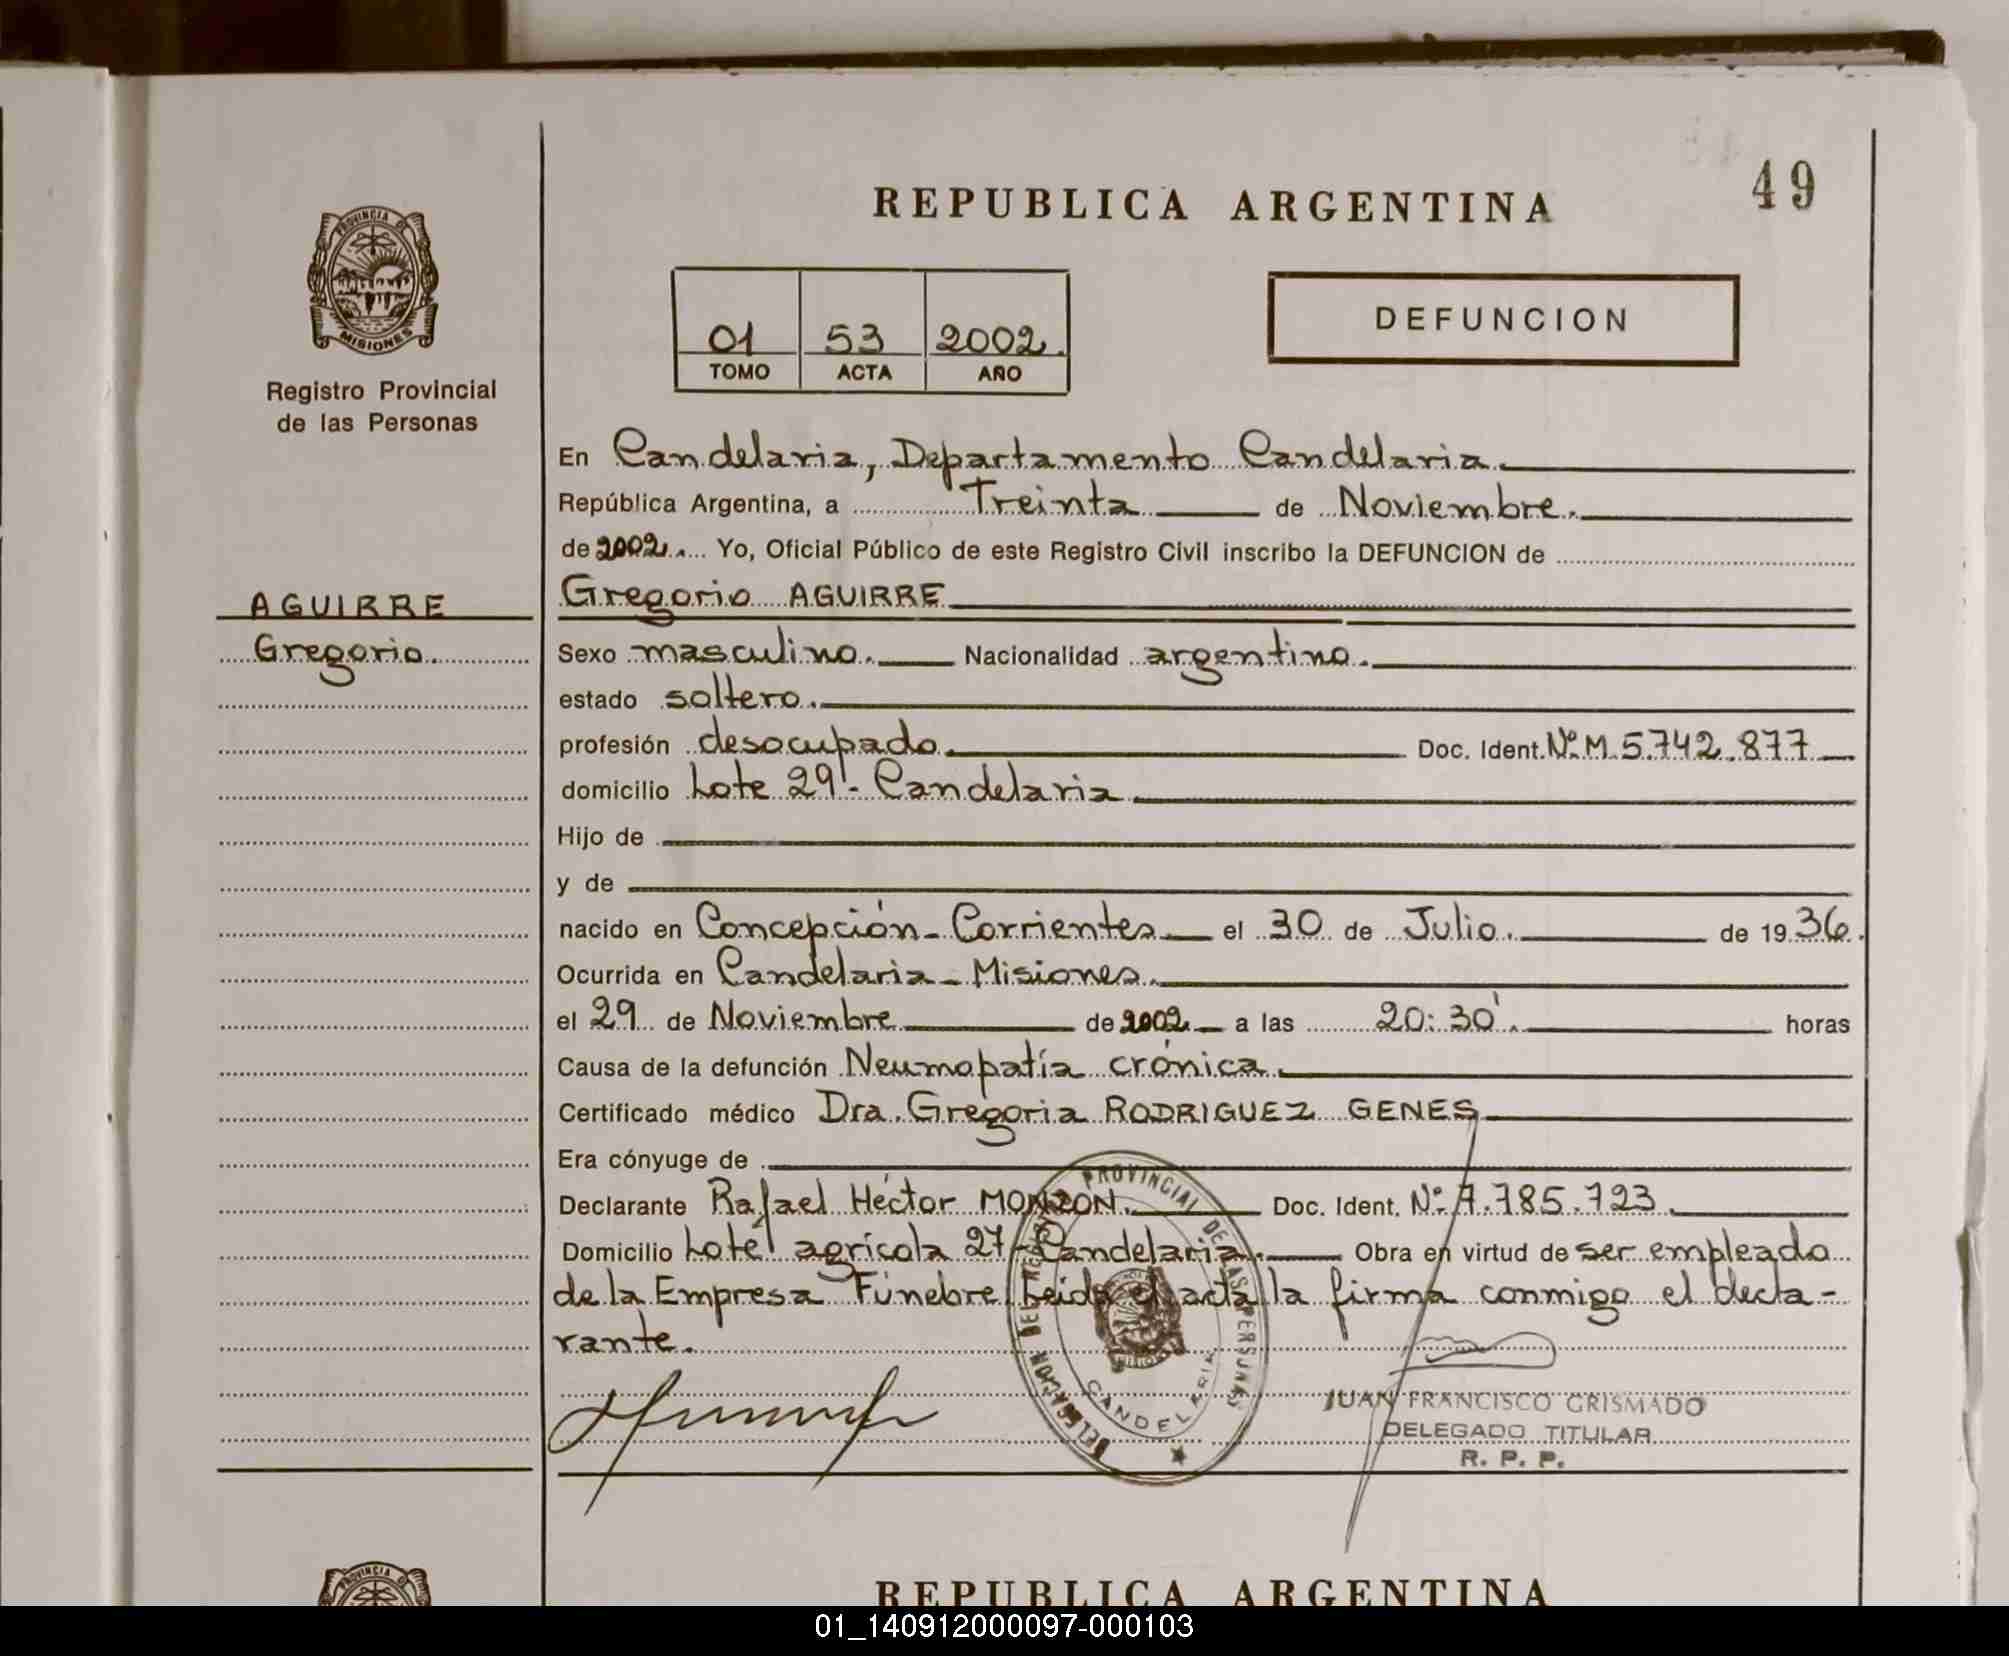 REPUBLICA ARGENTINA
49
PROVINCIA DE
MISIONES
Registro Provincial
de las Personas
01 53 2002.
TOMO ACTA AÑO
DEFUNCION
En Candelaria, Departamento Candelaria.
República Argentina, a Treinta de Noviembre.
de 2002. Yo, Oficial Público de este Registro Civil inscribo la DEFUNCION de
AGUIRRE
Gregorio AGUIRRE
Gregorio.
Sexo masculino. Nacionalidad argentino.
estado soltero.
profesión desocupado. Doc. Ident. Nº M 5.742.877
domicilio Lote 29 - Candelaria
Hijo de
y de
nacido en Concepción - Corrientes el 30 de Julio. de 1936.
Ocurrida en Candelaria - Misiones.
el 29 de Noviembre de 2002 a las 20:30'. horas
Causa de la defunción Neumopatía crónica.
Certificado médico Dra. Gregoria RODRIGUEZ GENES
Era cónyuge de
Declarante Rafael Héctor MONZON. Doc. Ident. Nº 7.785.723.
Domicilio Lote agrícola 27 - Candelaria. Obra en virtud de ser empleado
de la Empresa Fúnebre. Leida el acta la firma conmigo el decla-
rante.
DELEGACION DEL REGISTRO PROVINCIAL DE LAS PERSONAS
MISIONES
CANDELARIA
JUAN FRANCISCO GRISMADO
DELEGADO TITULAR
R. P. P.
PROVINCIA DE
REPUBLICA ARGENTINA
01_140912000097-000103